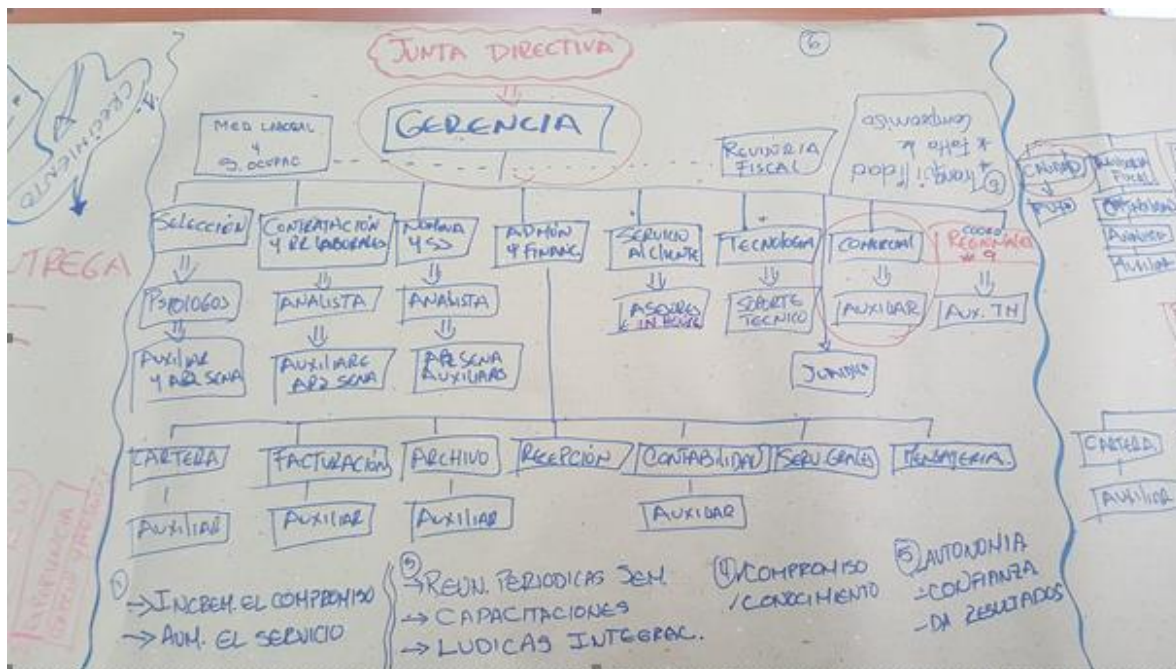 JUNTA DIRECTIVA
6
GERENCIA
MED LABORAL
Y
S. OCUPAC
REVISORIA
FISCAL
6
* Tranquilidad
* falta de
compromiso
CRECIMIENTO
SELECCIÓN
CONTRATACIÓN
Y RE LABORALES
NOMINA
Y SS
ADMÓN
Y FINANC
SERVICIO
AL CLIENTE
TECNOLOGIA
COMERCIAL
COORD
REGIONALES
# 9
PSICOLOGOS
ANALISTA
ANALISTA
ASESORES
IN HOUSE
SOPORTE
TECNICO
AUXILIAR
AUX. TH
AUXILIAR
Y APZ SENA
AUXILIARE
APZ SENA
APZ SENA
AUXILIARES
JURIDICO
CARTERA
FACTURACIÓN
ARCHIVO
RECEPCIÓN
CONTABILIDAD
SERV. GRALES
MENSAJERIA.
AUXILIAR
AUXILIAR
AUXILIAR
AUXILIAR
→ INCREM. EL COMPROMISO
→ AUM. EL SERVICIO
→ REUN. PERIODICAS SEM.
→ CAPACITACIONES
→ LUDICAS INTEGRAC.
4 COMPROMISO
/ CONOCIMIENTO
5 AUTONOMIA
- CONFIANZA
- DA RESULTADOS
CALIDAD
FISCAL
ANALISTA
AUXILIAR
CARTERA
AUXILIAR